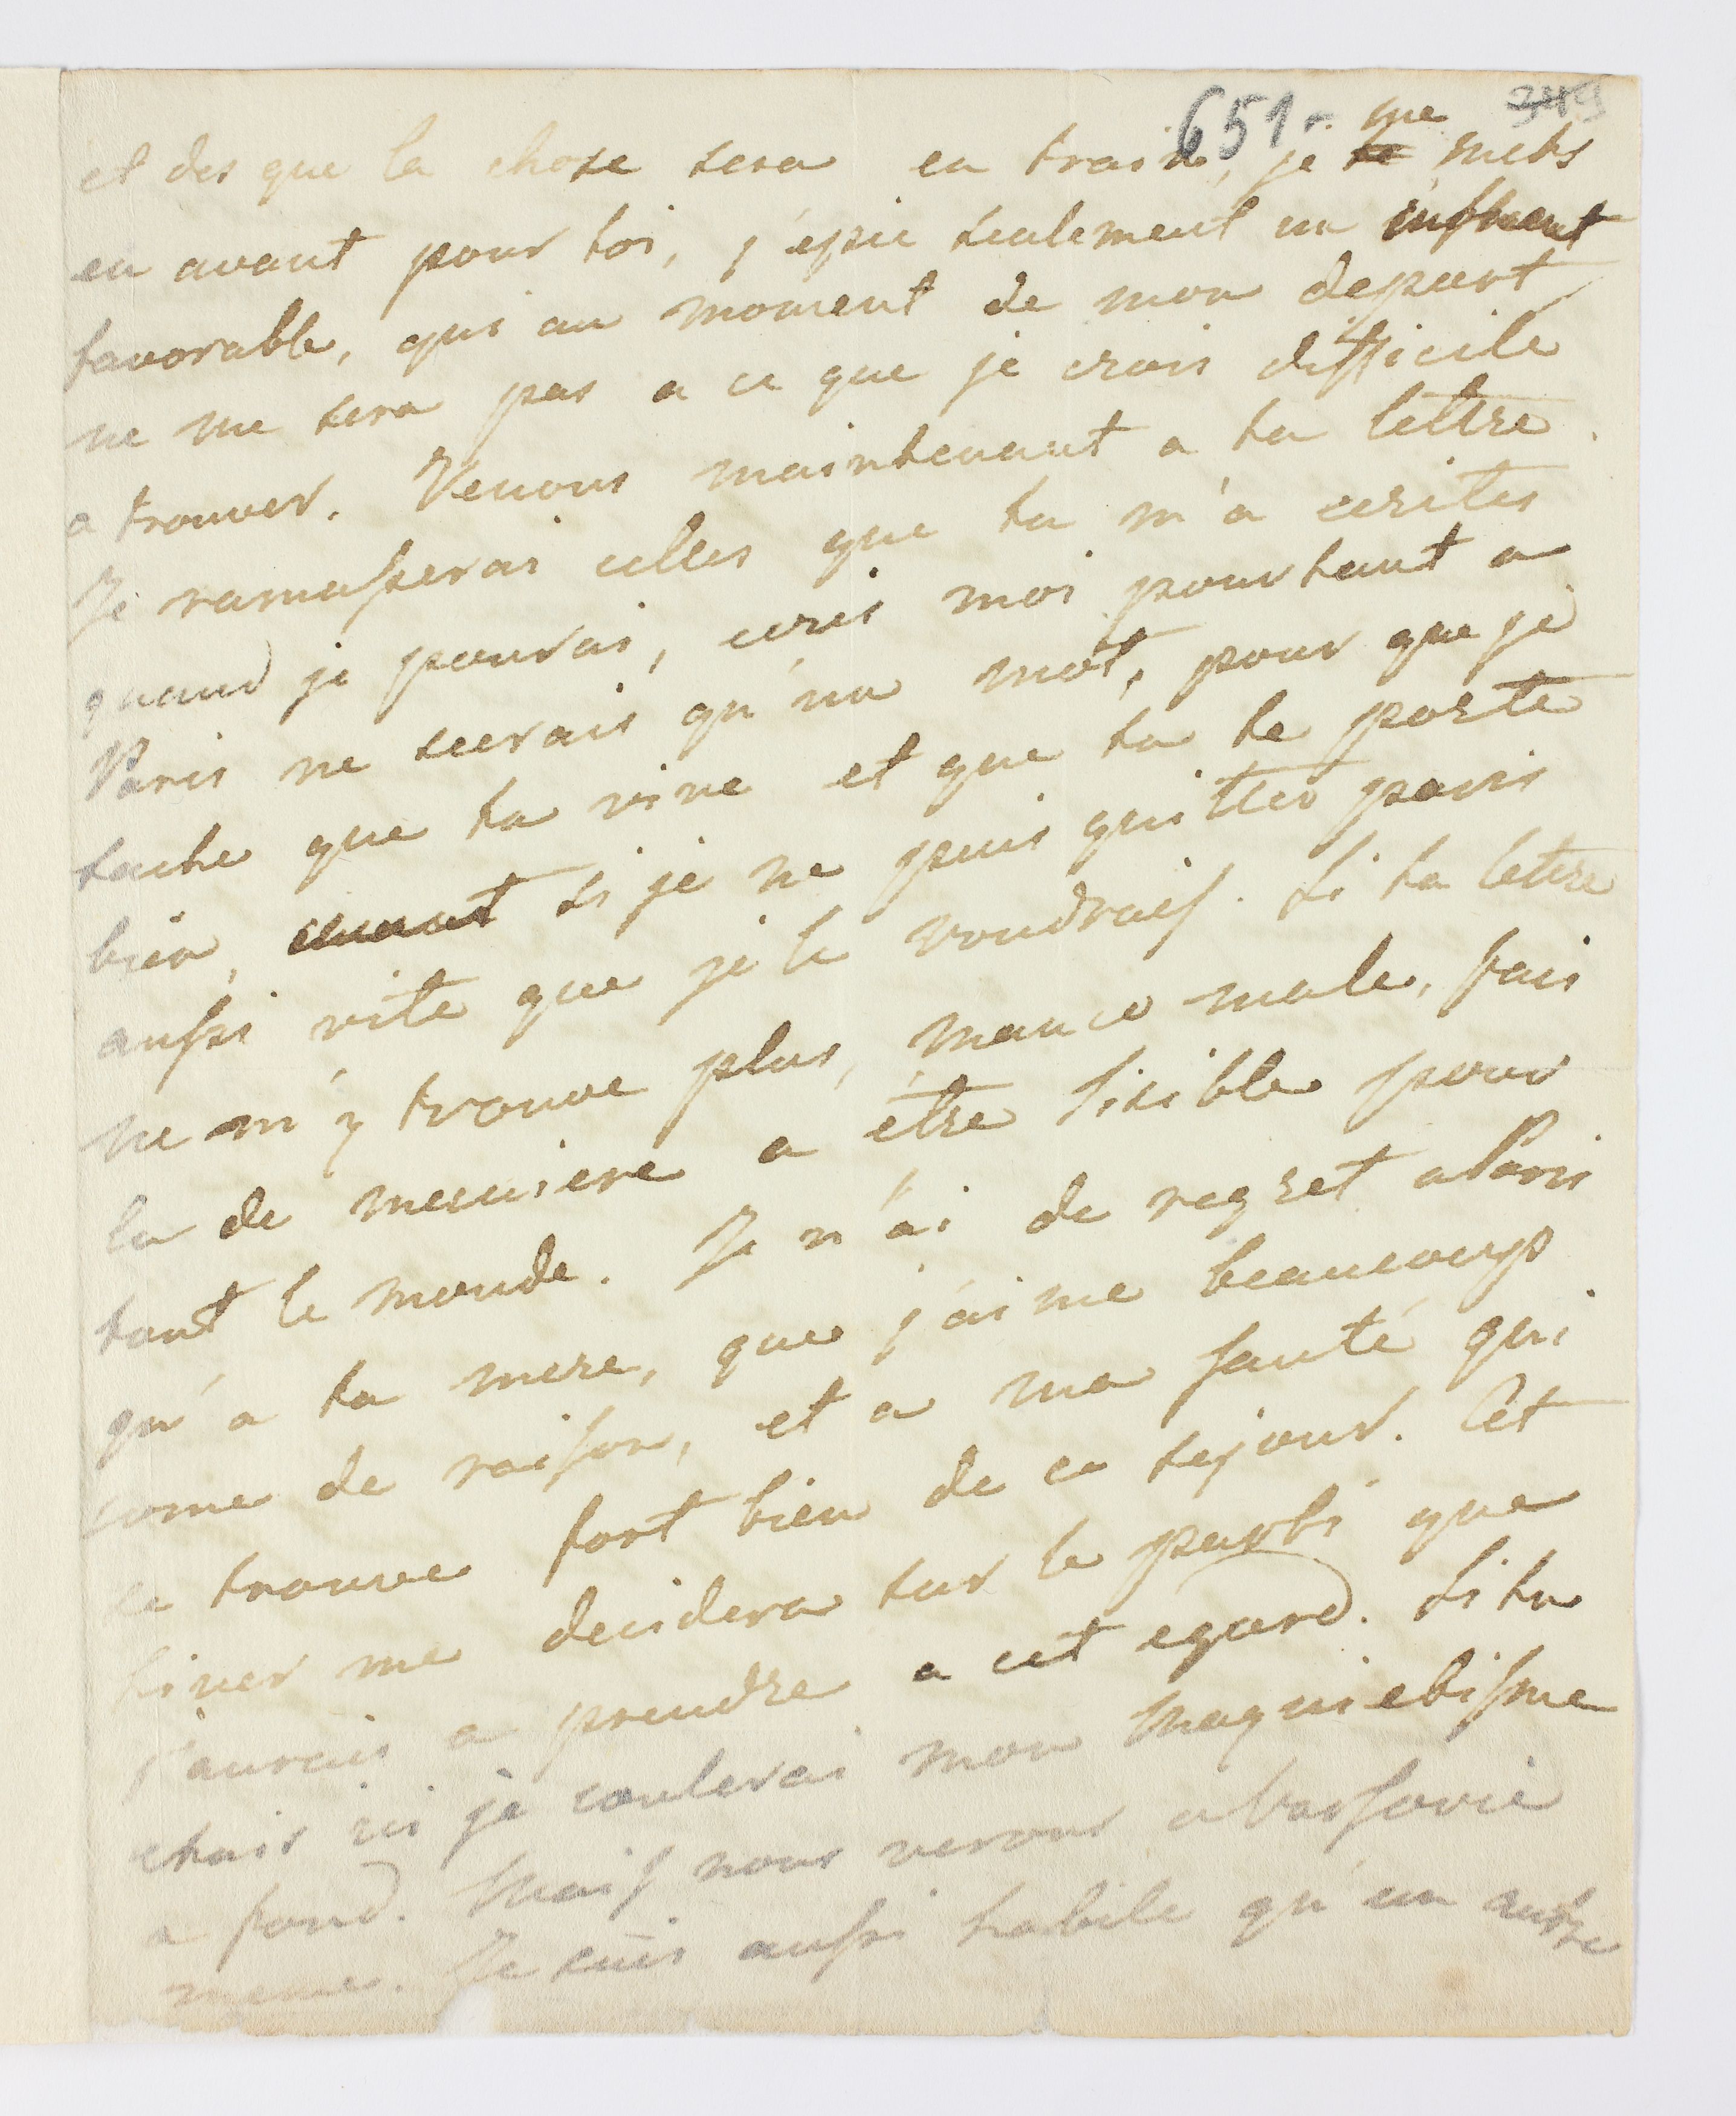 651r. 349
et des que la chose sera en train, je te me mets
en avant pour toi, j'epie seulement un instant
favorable, qui au moment de mon depart
ne me sera pas a ce que je crois difficile
a trouver. Venons maintenant a ta lettre.
Je ramasserai celles que tu m'a ecrites
quand je pourai, ecris moi pourtant a
Paris ne seerais qu'un mot, pour que je
sache que tu vive et que tu te porte
bien, si je ne puis quitter paris
aussi vite que je le voudrais. Si ta lettre
ne m'y trouve plus, male, fais
la de meniere a être lisible pour
tout le monde. Je n'ai de regret a Paris
qu'a ta mere, que j'aime beaucoup
come de raison, et a ma santé qui
ce trouve fort bien de ce sejour. Cet
hiver me decidera sur le parti que
j'aurais a prendre a cet egard. Si tu
etais ici je coulerai mon magnietisme
a fond. Mais nous verons a Varsovie
meme. Je suis aussi habile qu'un autre